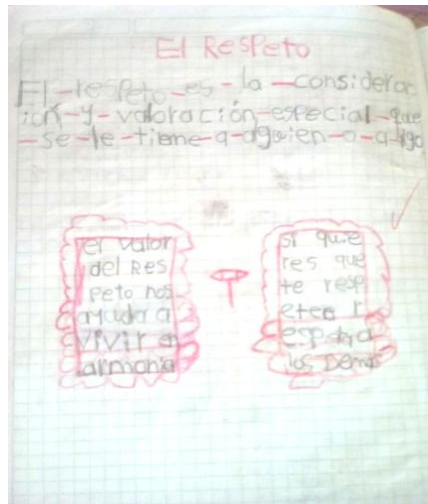 El Respeto
El-respeto-es-la-considerac
ión-y-valoración-especial-que
-se-le-tiene-a-alguien-o-a-algo
el valor
del Res
peto nos
ayuda a
vivir en
armonia
si quie
res que
te resp
eten r
espeta a
los Demas